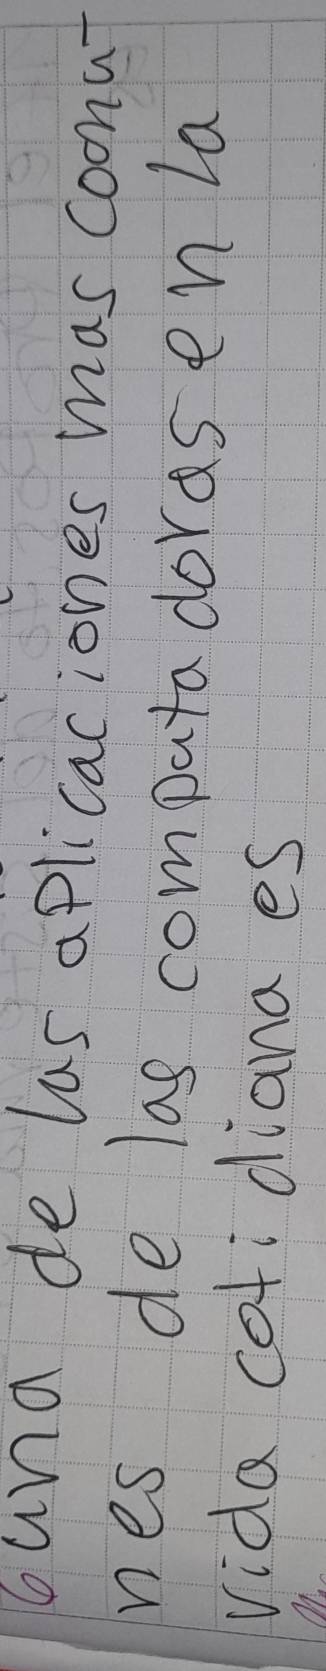 6 una de las aplicaciones mas comu-
nes de las computadoras en la
vida cotidiana es